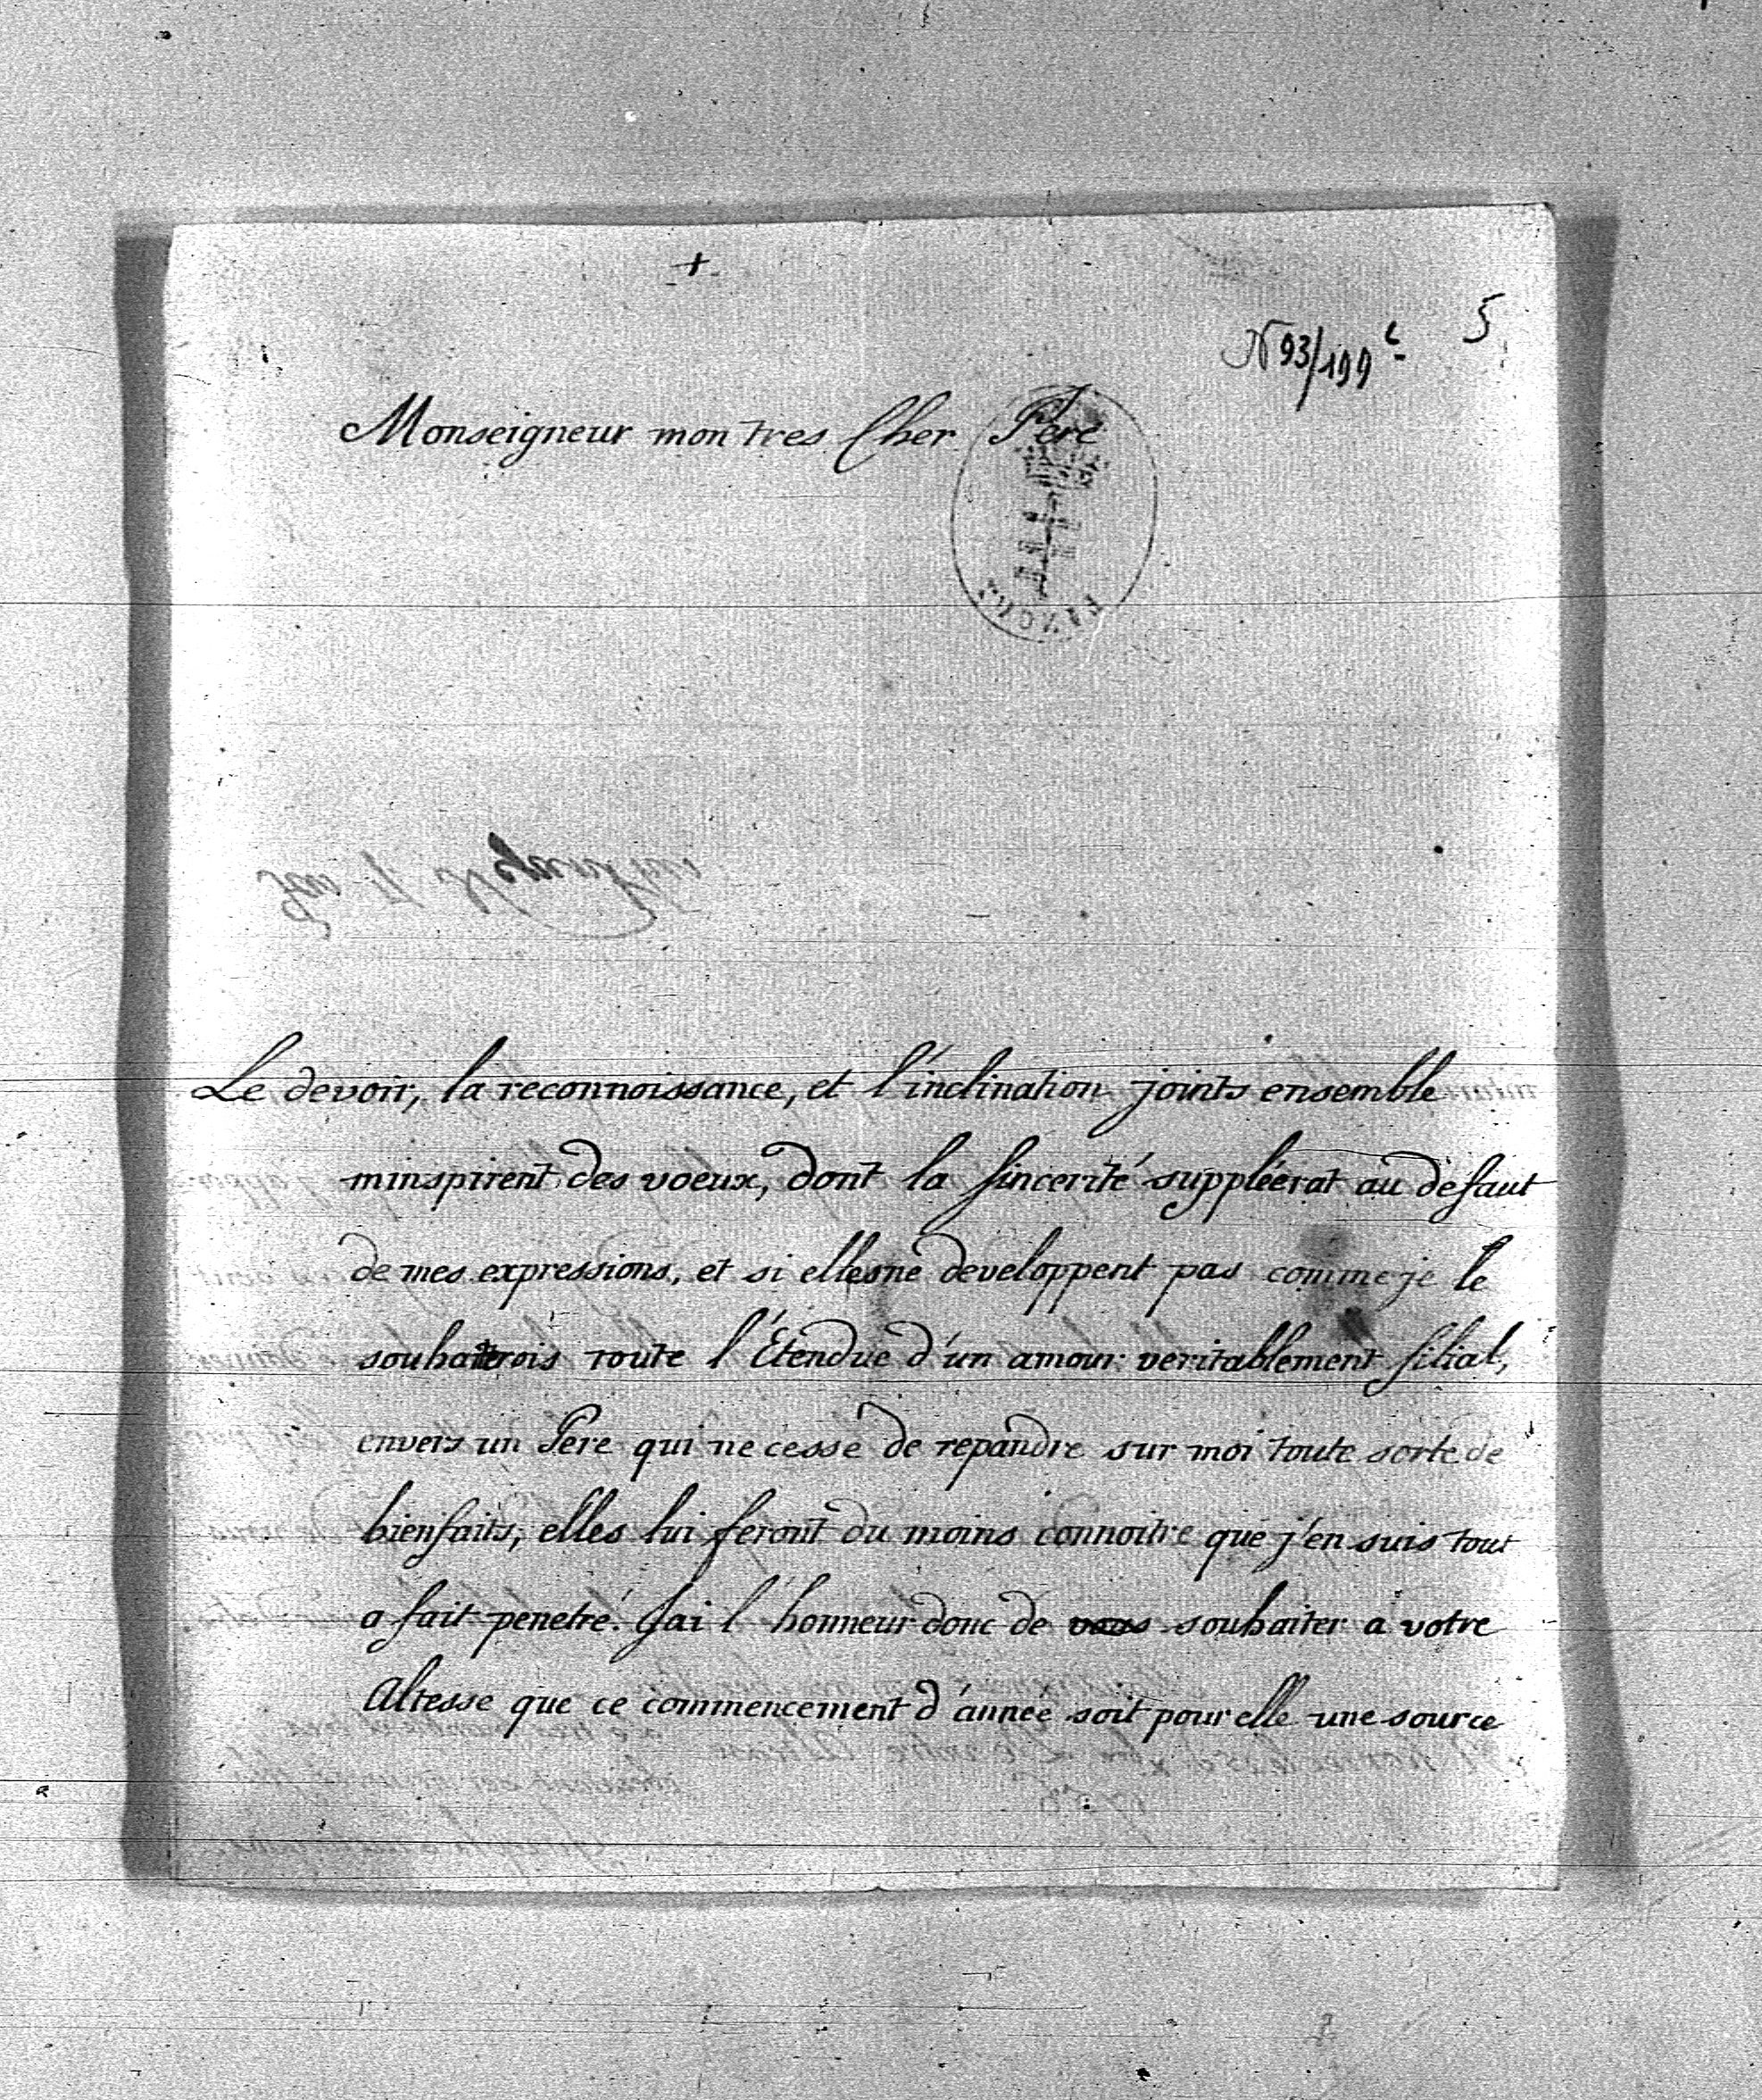 +
5
N 93/199
Monseigneur mon tres Cher Pere
Le devoir, la reconnoissance, et l'inclination joints ensemble
minspirent des voeux, dont la sincerité suppléerat au defaut
de mes expressions, et si elles ne developpent pas comme je le
souhaiterois toute l'Etendue d'un amour veritablement filial,
envers un Pere qui ne cesse de repandre sur moi toute sorte de
bienfaits, elles lui feront du moins connoitre que j'en suis tout
a fait penetré. Jai l'honneur donc de vous souhaiter a votre
Altesse que ce commencement d'année soit pour elle une source